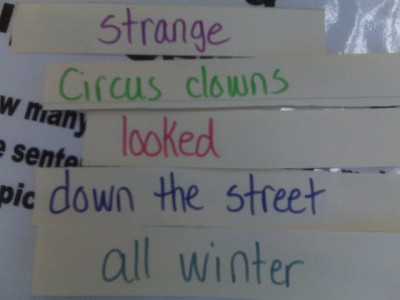 strange
Circus clowns
looked
w many
down the street
e sente
pic
all winter